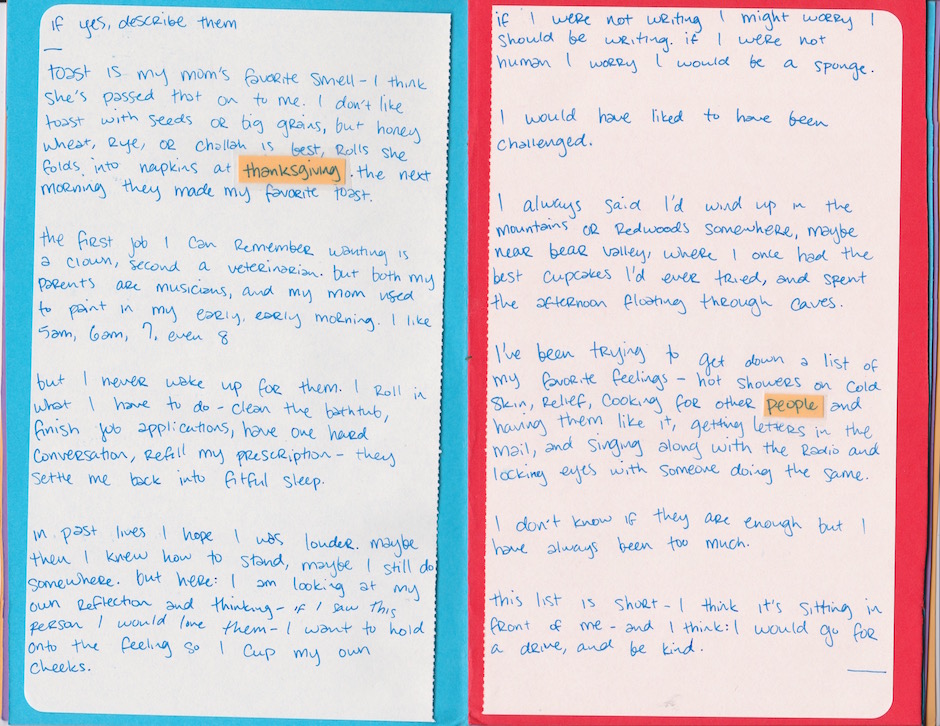 if yes, describe them
—
toast is my mom's favorite smell - I think
she's passed that on to me. I don't like
toast with seeds or big grains, but honey
wheat, rye, or challah is best, rolls she
folds into napkins at thanksgiving. the next
morning they made my favorite toast.
the first job I can remember wanting is
a clown, second a veterinarian. but both my
parents are musicians, and my mom used
to paint in my early, early morning. I like
5am, 6am, 7, even 8
but I never wake up for them. I roll in
what I have to do - clean the bathtub,
finish job applications, have one hard
conversation, refill my prescription - they
settle me back into fitful sleep.
in past lives I hope I was louder. maybe
then I knew how to stand, maybe I still do
somewhere. but here: I am looking at my
own reflection and thinking - if I saw this
person I would love them - I want to hold
onto the feeling so I cup my own
cheeks.
if I were not writing I might worry I
should be writing. if I were not
human I worry I would be a sponge.
I would have liked to have been
challenged.
I always said I'd wind up in the
mountains or redwoods somewhere, maybe
near bear valley, where I once had the
best cupcakes I'd ever tried, and spent
the afternoon floating through caves.
I've been trying to get down a list of
my favorite feelings - hot showers on cold
skin, relief, cooking for other people and
having them like it, getting letters in the
mail, and singing along with the radio and
locking eyes with someone doing the same.
I don't know if they are enough but I
have always been too much.
this list is short - I think it's sitting in
front of me - and I think: I would go for
a drive, and be kind.